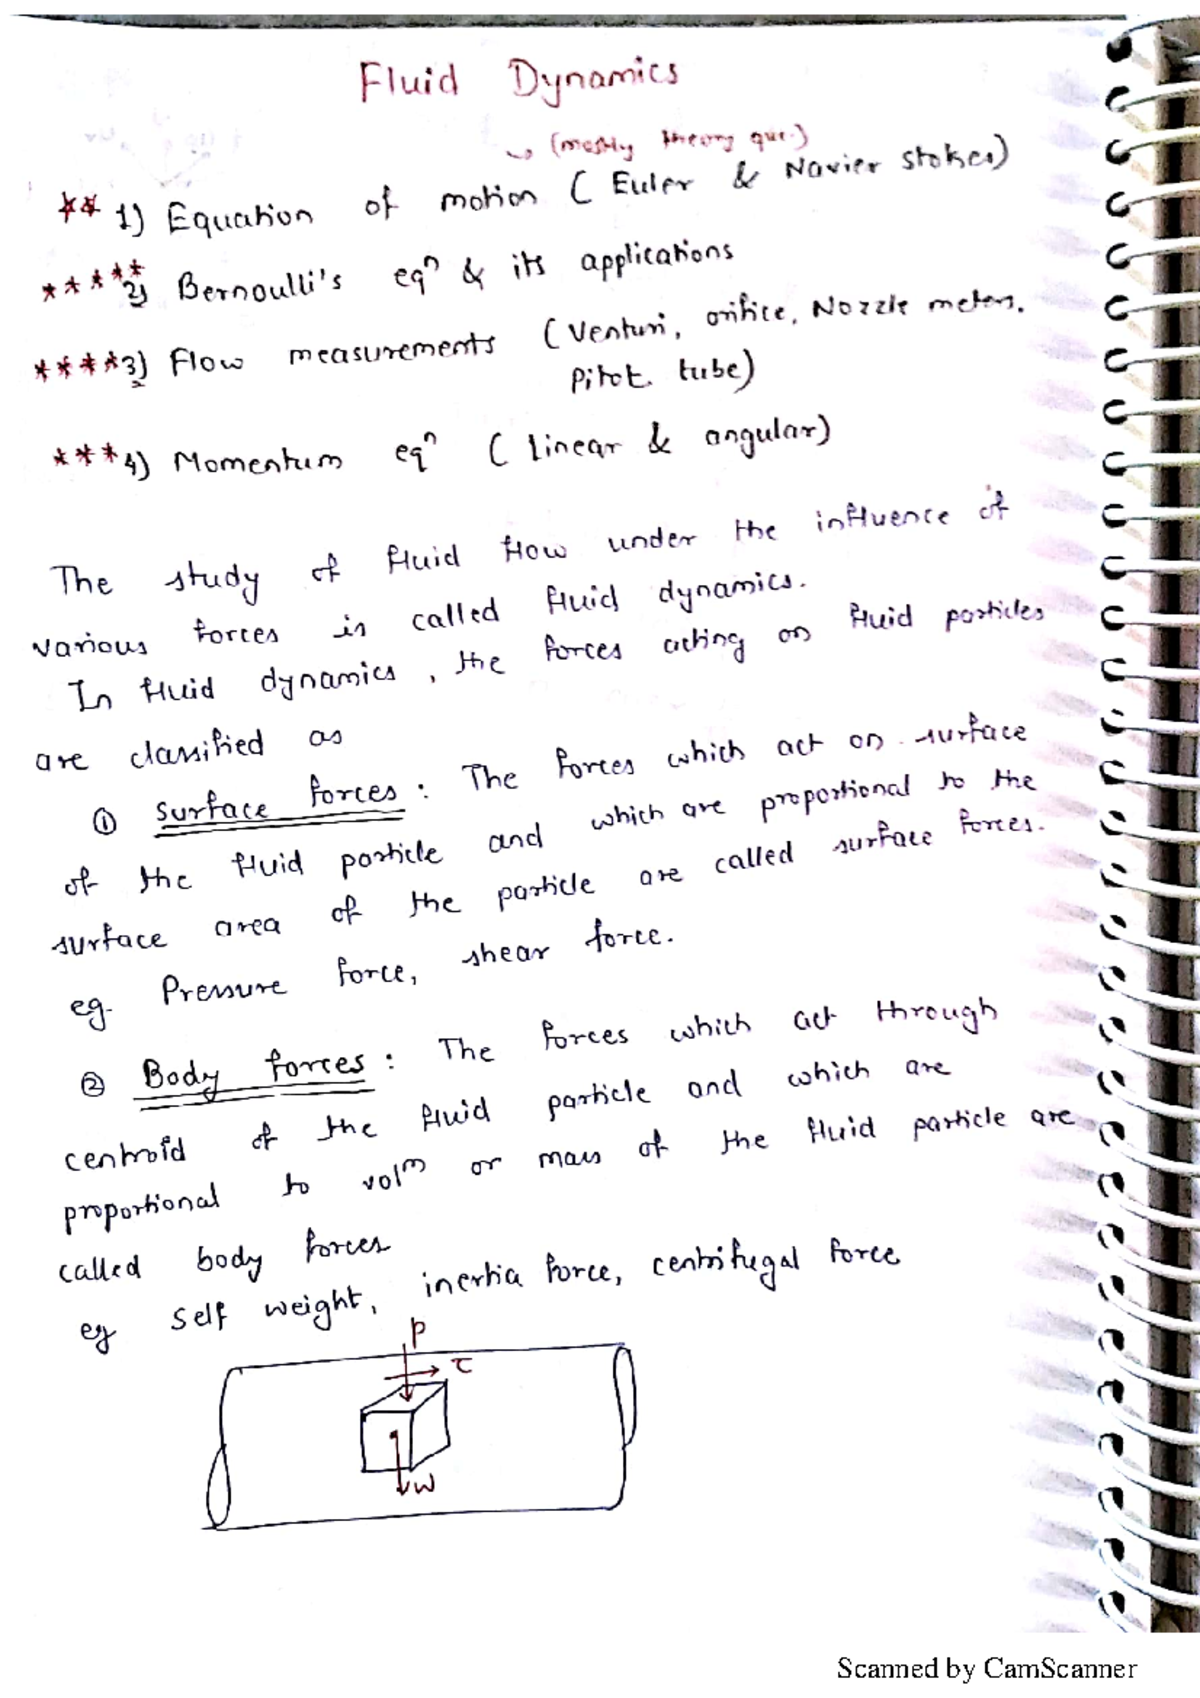 Fluid Dynamics
↳ (mostly theory que.)
** 1) Equation of motion ( Euler & Navier stokes)
***** 2) Bernoulli's eqⁿ & its applications
**** 3) Flow measurements ( Venturi, orifice, Nozzle meters.
Pitot tube)
*** 4) Momentum eqⁿ ( linear & angular)
The study of fluid flow under the influence of
various forces is called fluid dynamics.
In fluid dynamics, the forces acting on fluid particles
are classified as
① surface forces : The forces which act on surface
of the fluid particle and which are proportional to the
surface area of the particle are called surface forces.
eg. Pressure force, shear force.
② Body forces : The forces which act through
centroid of the fluid particle and which are
proportional to volᵐ or mass of the fluid particle are
called body forces
eg self weight, inertia force, centrifugal force
P
τ
W
Scanned by CamScanner